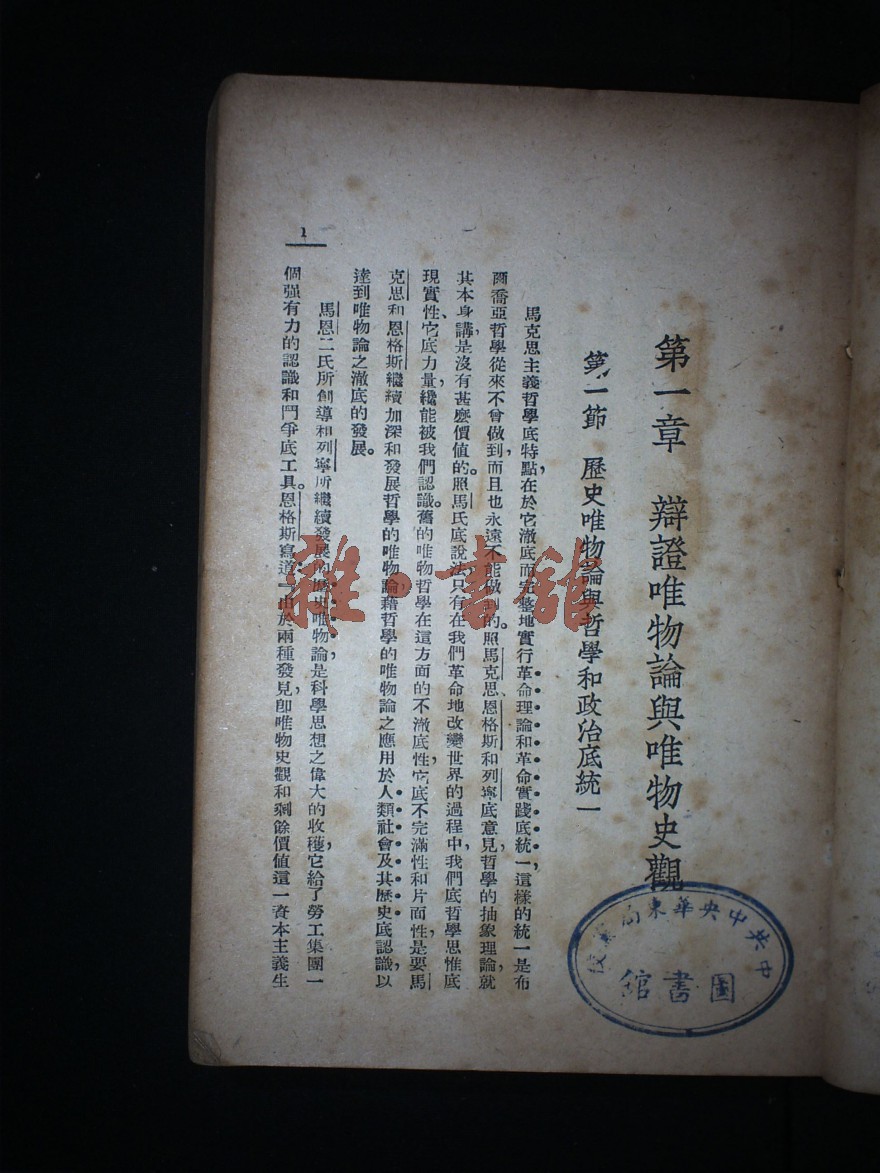 第一章 辯證唯物論與唯物史觀
第一節 歷史唯物論與哲學和政治底統一
馬克思主義哲學底特點在於它澈底而完整地實行革命理論和革命實踐底統一，這樣的統一是布
爾喬亞哲學從來不曾做到，而且也永遠不能做到的。照馬克思、恩格斯和列寧底意見，哲學的抽象理論，就
其本身講，是沒有甚麼價值的。照馬氏底說法，只有在我們革命地改變世界的過程中，我們底哲學思惟底
現實性、它底力量，纔能被我們認識。舊的唯物哲學在這方面的不澈底性，它底不完滿性和片面性，是要馬
克思和恩格斯繼續加深和發展哲學的唯物論，藉哲學的唯物論之應用於人類社會及其歷史底認識，以
達到唯物論之澈底的發展。
馬恩二氏所創導和列寧所繼續發展的歷史唯物論，是科學思想之偉大的收穫，它給了勞工集團一
個强有力的認識和鬥爭底工具。恩格斯寫道：『由於兩種發見，卽唯物史觀和剩餘價值這一資本主義生
1
中共中央華東局黨校
圖書館
雜·書館